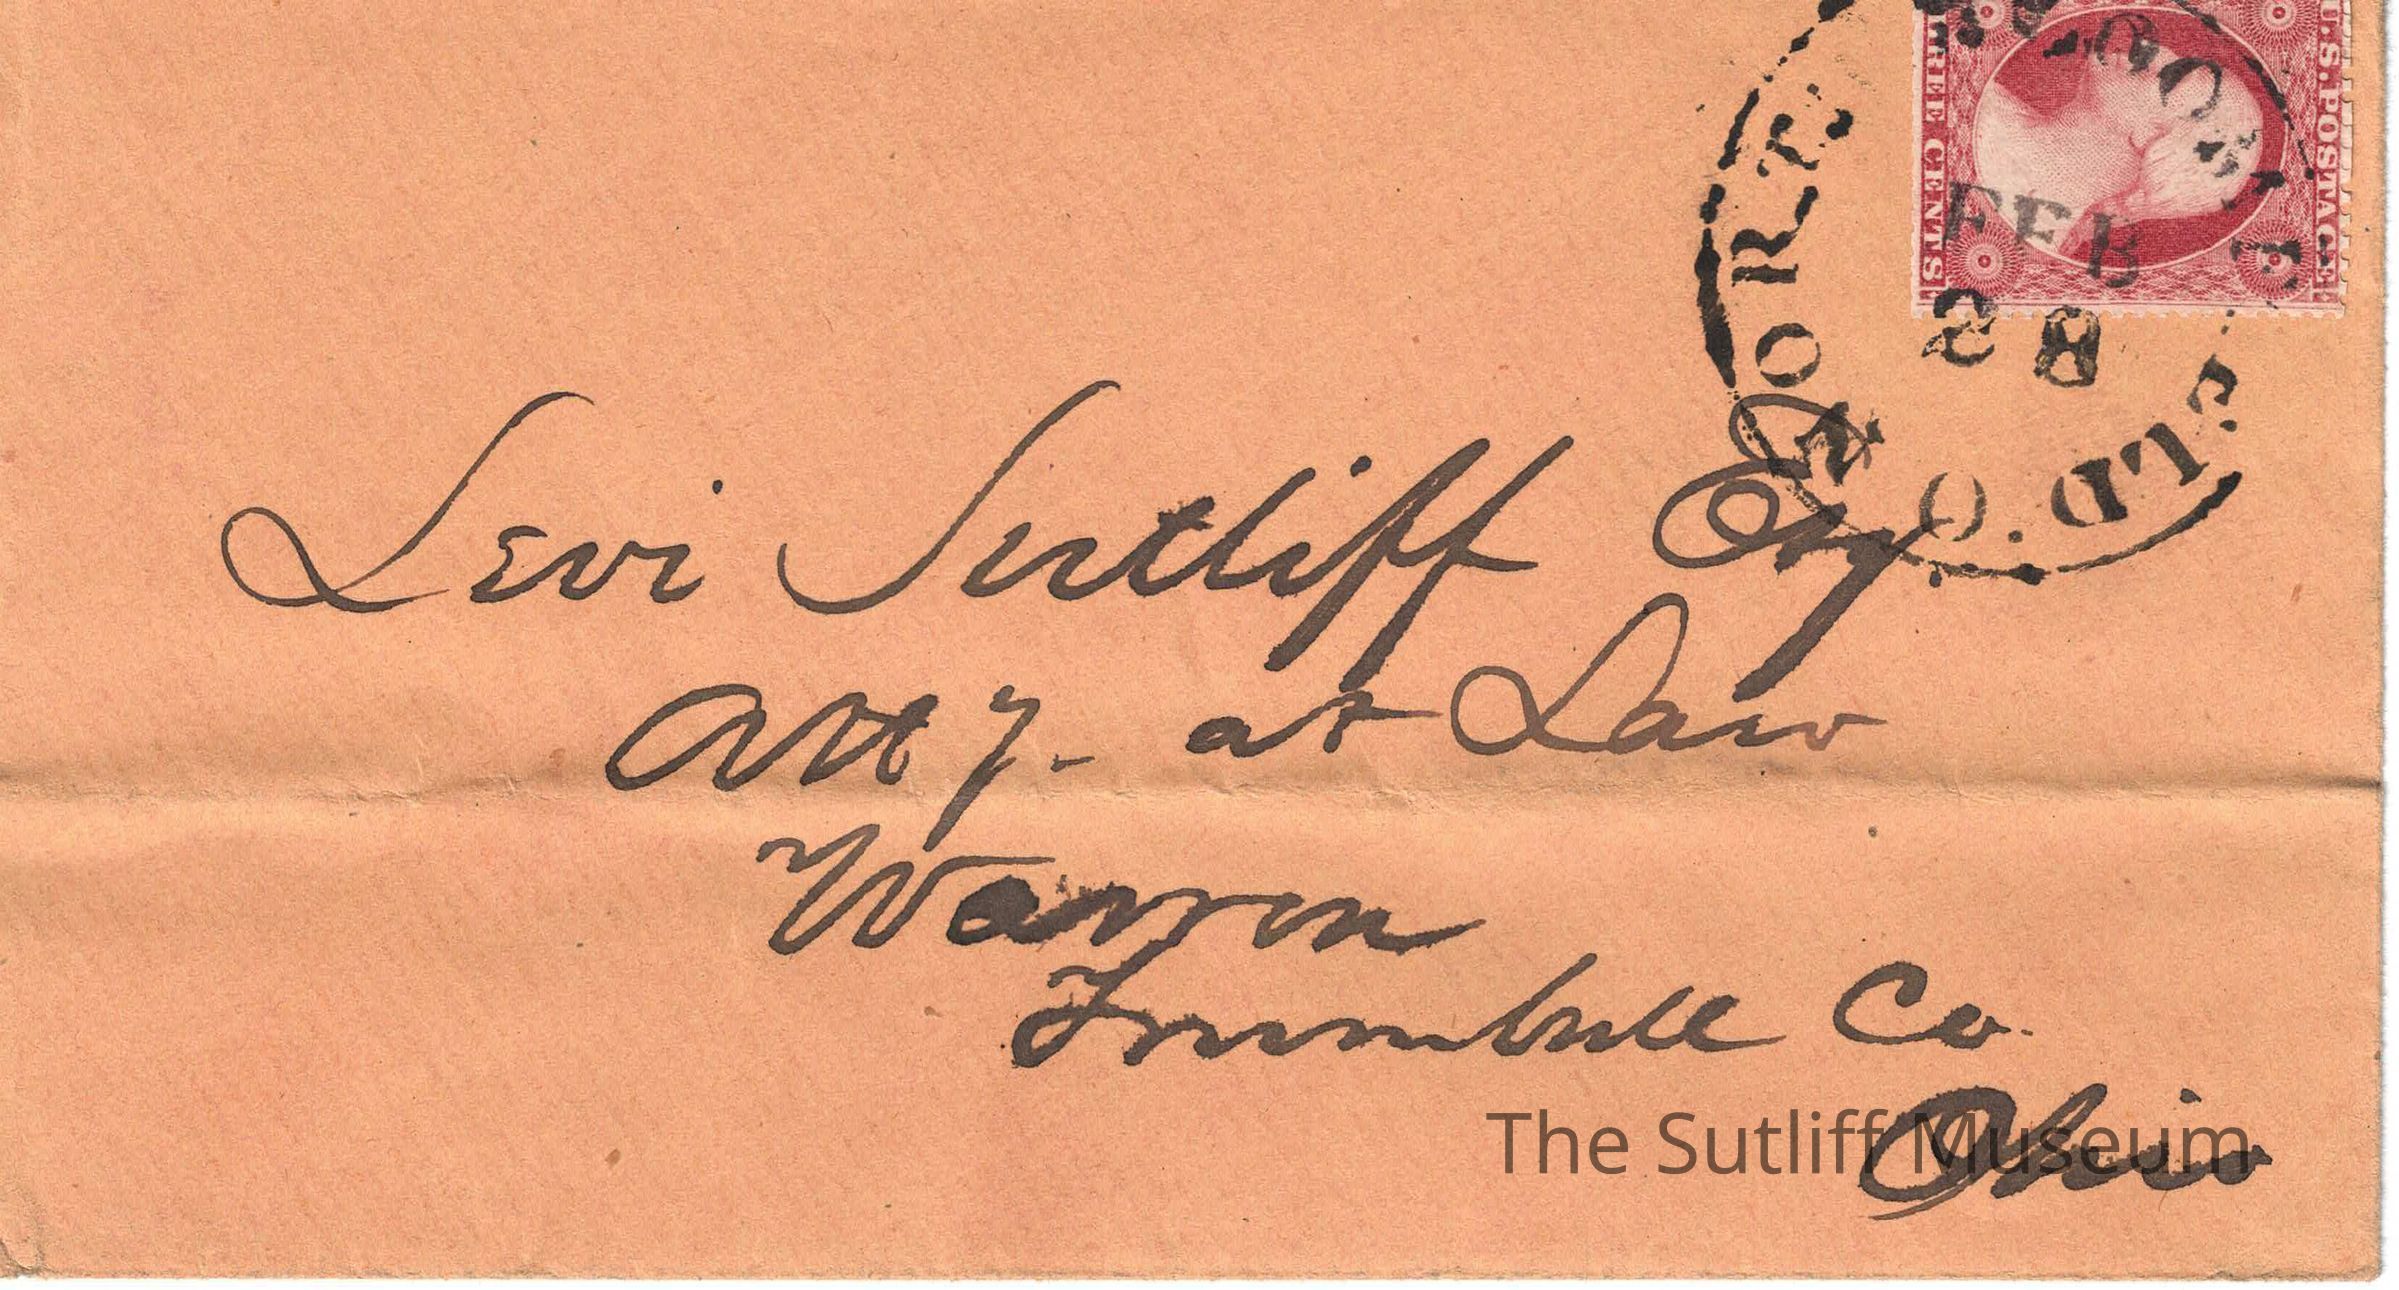 U.S. POSTAGE
REE CENTS
NORTH BLOOMFIELD. O.
FEB
28
Levi Sutliff Esq.
Atty- at Law
Warren
Trumbull Co.
Ohio
The Sutliff Museum